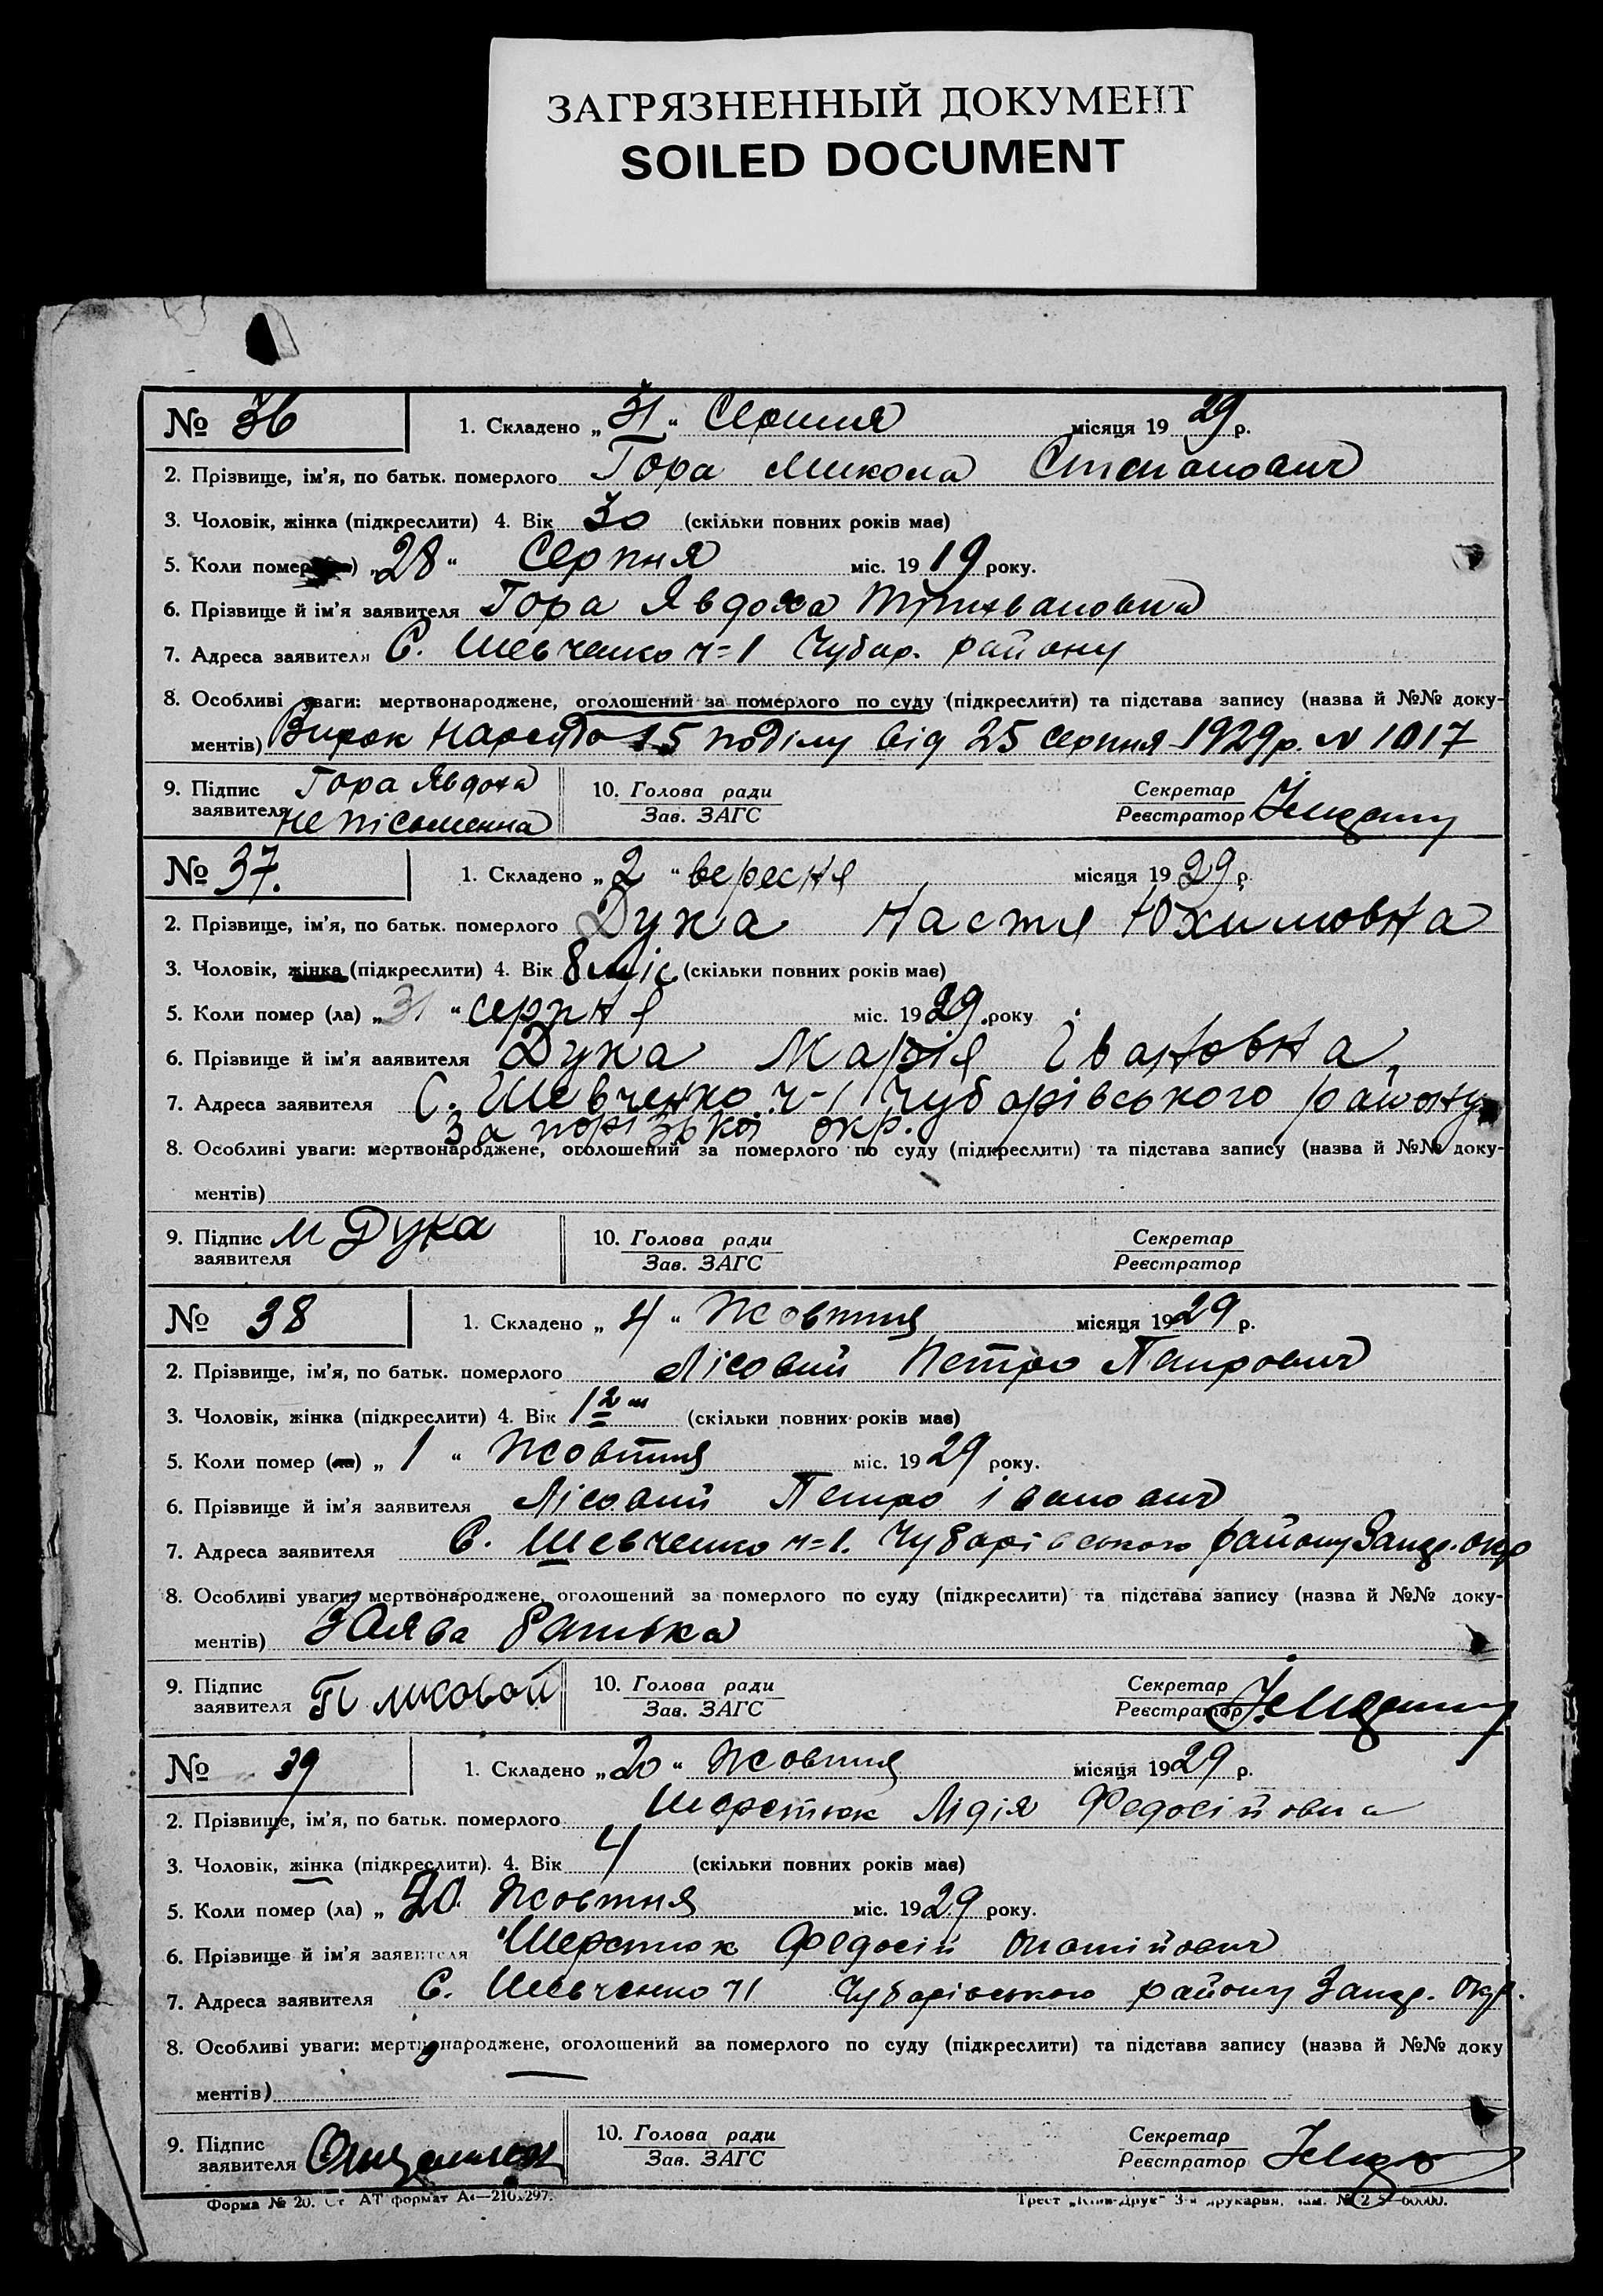 ЗАГРЯЗНЕННЫЙ ДОКУМЕНТ
SOILED DOCUMENT
№ 36 1. Складено „31“ Серпня місяця 1929 р.
2. Прізвище, ім'я, по батьк. померлого Гора Микола Степанович
3. Чоловік, жінка (підкреслити) 4. Вік 30 (скільки повних років має)
5. Коли помер „28“ Серпня міс. 1919 року.
6. Прізвище й ім'я заявителя Гора Явдоха
7. Адреса заявителя С. Шевченко ч=1 Чубар. району
8. Особливі уваги: мертвонароджене, оголошений за померлого по суду (підкреслити) та підстава запису (назва й №№ доку-
ментів) Вирок 15 поділу від 25 серпня 1929 р. N 1017
9. Підпис Гора Явдоха 10. Голова ради Секретар
заявителя не пісьменна Зав. ЗАГС Реєстратор
№ 37. 1. Складено „2“ вересня місяця 1929 р.
2. Прізвище, ім'я, по батьк. померлого Дука Настя Юхимовна
3. Чоловік, жінка (підкреслити) 4. Вік 8 міс (скільки повних років має)
5. Коли помер (ла) „31“ серпня міс. 1929 року
6. Прізвище й ім'я заявителя Дука Марія Івановна
7. Адреса заявителя С. Шевченко ч-1 Чубарівського району
Запорізької окр.
8. Особливі уваги: мертвонароджене, оголошений за померлого по суду (підкреслити) та підстава запису (назва й №№ доку-
ментів)
9. Підпис М Дука 10. Голова ради Секретар
заявителя Зав. ЗАГС Реєстратор
№ 38 1. Складено „4“ Жовтня місяця 1929 р.
2. Прізвище, ім'я, по батьк. померлого Лісовий Петро Петрович
3. Чоловік, жінка (підкреслити) 4. Вік (скільки повних років має)
5. Коли помер (ла) „1“ Жовтня міс. 1929 року.
6. Прізвище й ім'я заявителя Лісовий Петро Іванович
7. Адреса заявителя С. Шевченко ч=1. Чубарівського району Запор. окр
8. Особливі уваги: мертвонароджене, оголошений за померлого по суду (підкреслити) та підстава запису (назва й №№ доку-
ментів) Заява батька
9. Підпис П лисовой 10. Голова ради Секретар
заявителя Зав. ЗАГС Реєстратор
№ 39 1. Складено „20“ Жовтня місяця 1929 р.
2. Прізвище, ім'я, по батьк. померлого Шерстюк Лідія Федосійовна
3. Чоловік, жінка (підкреслити). 4. Вік 4 (скільки повних років має)
5. Коли помер (ла) „20 Жовтня міс. 1929 року.
6. Прізвище й ім'я заявителя Шерстюк Федосій
7. Адреса заявителя С. Шевченко ч1 Чубарівського району Запор. Окр.
8. Особливі уваги: мертвонароджене, оголошений за померлого по суду (підкреслити) та підстава запису (назва й №№ доку
ментів)
9. Підпис 10. Голова ради Секретар
заявителя Зав. ЗАГС Реєстратор
Форма № 20. Ст АТ формат А4—210х297. Трест „Київ-Друк“ 3-я друкарня.